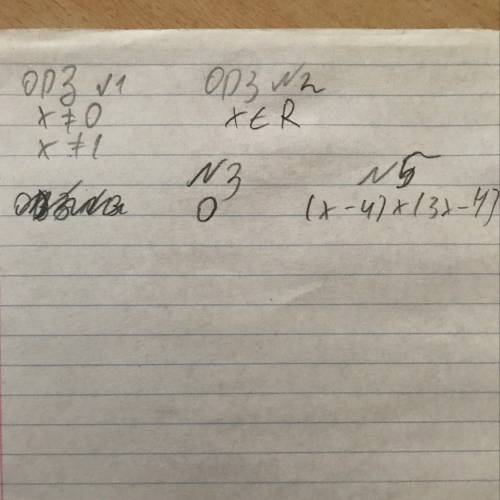 ОДЗ №1
x ≠ 0
x ≠ 1
ОДЗ №2
x ∈ R
№3
0
№5
(x-4)x(3x-4)